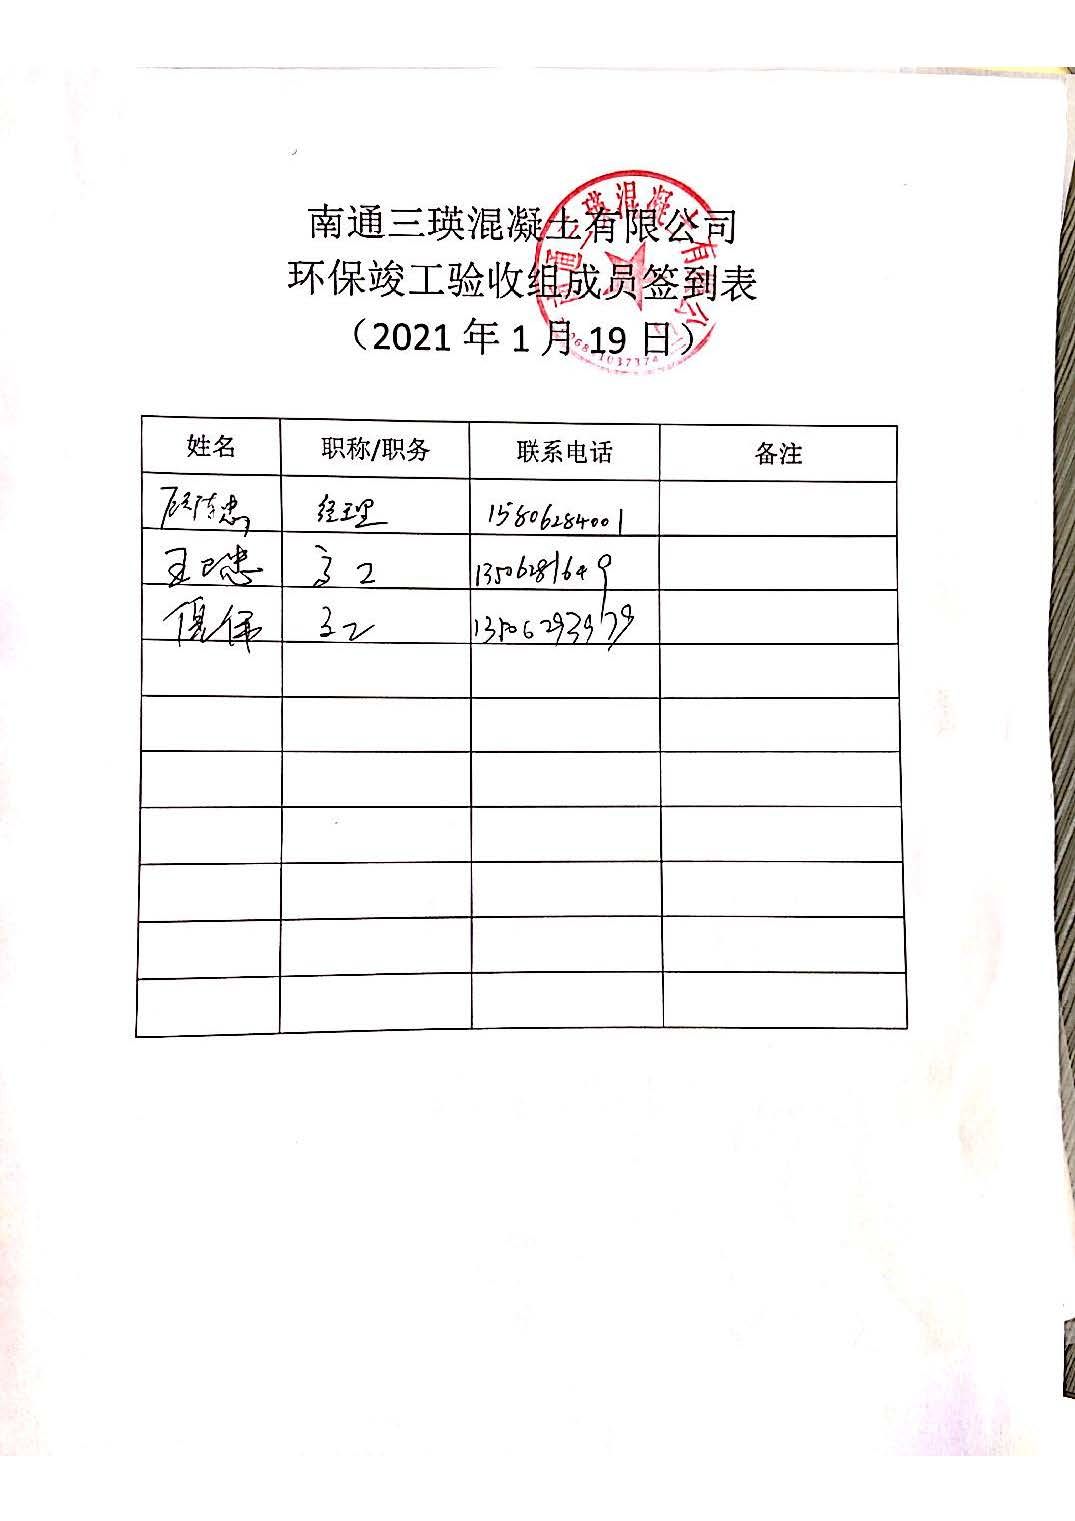 南通三瑛混凝土有限公司
环保竣工验收组成员签到表
（2021年1月19日）
姓名 职称/职务 联系电话 备注
经理 15806284001
高工 13506281649
倪伟 高工 13506293979